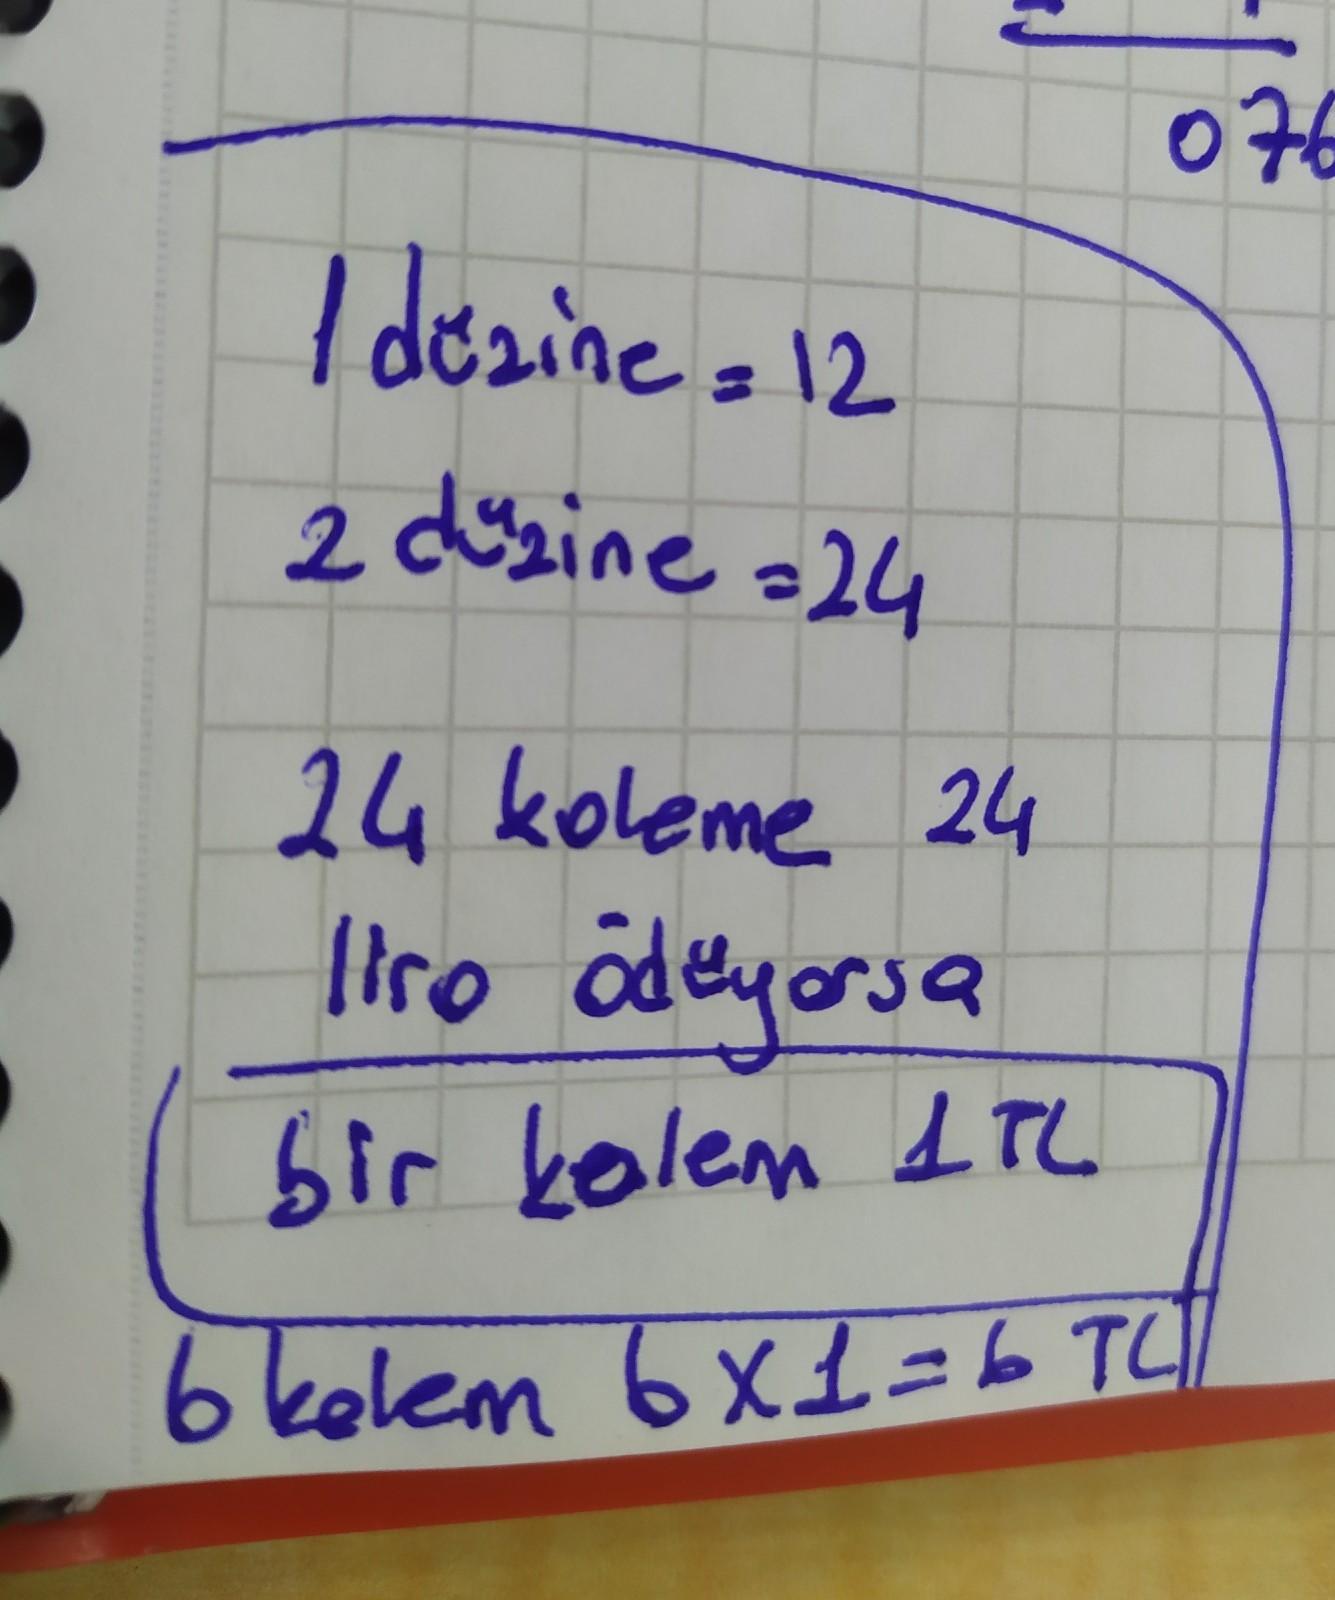 076
1 düzine = 12
2 düzine = 24
24 kaleme 24
lira ödüyorsa
bir kalem 1 TL
6 kalem 6 x 1 = 6 TL